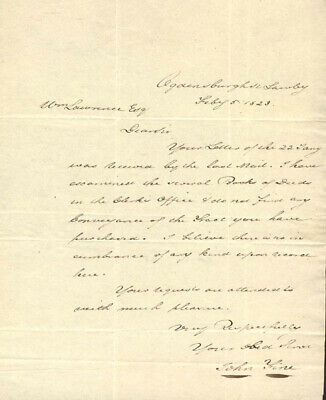 Ogdensburgh St Lawby
Feby 5 1823.
Wm Lawrence Esq
Dear Sir
Your Letter of the 22 Jany
was received by the last Mail. I have
examined the several Books of Deeds
in the Clerks Office & do not find any
Conveyance of the Tract you have
purchased. I believe there is no in
cumbrance of any kind upon record
here.
Your requests are attended to
with much pleasure.
Very Respectfully
Your Obd Servt
John Fine